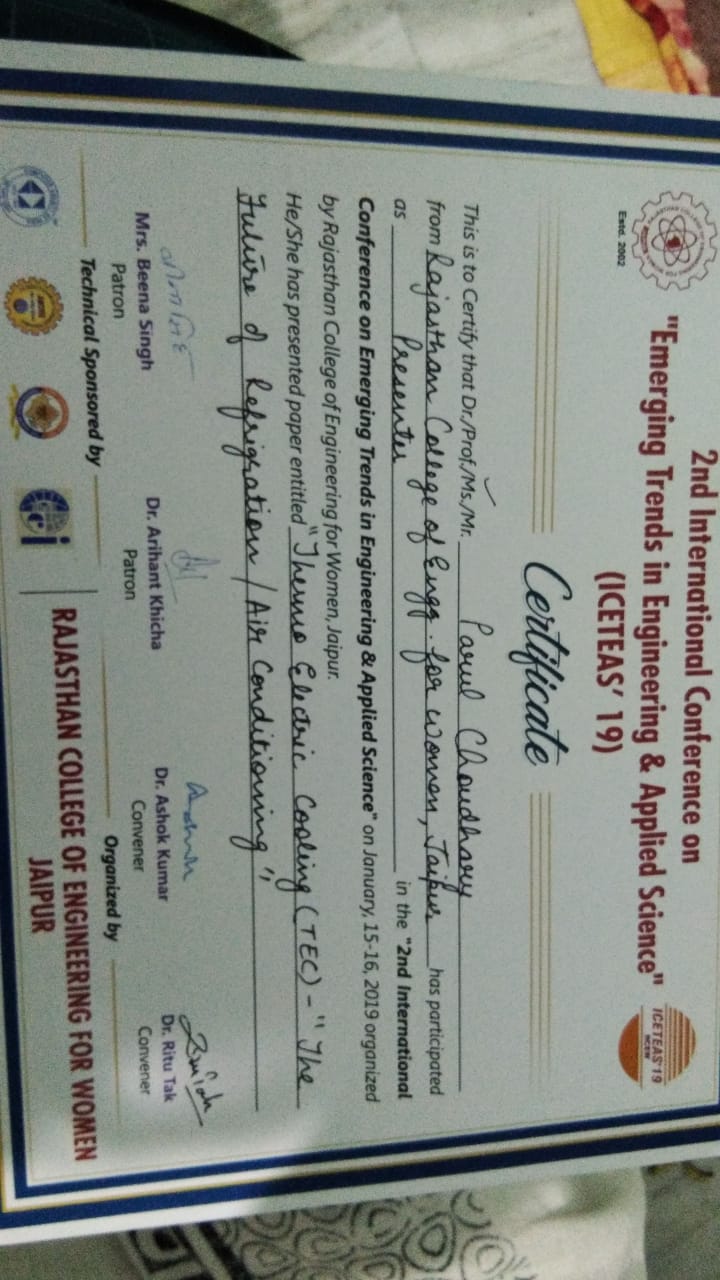 2nd International Conference on
"Emerging Trends in Engineering & Applied Science"
(ICETEAS' 19)
Estd. 2002
ICETEAS'19
RCEW
Certificate
This is to Certify that Dr./Prof./Ms./Mr. Parul Choudhary
from Rajasthan College of Engg. for women, Jaipur has participated
as Presenter in the "2nd International
Conference on Emerging Trends in Engineering & Applied Science" on January, 15-16, 2019 organized
by Rajasthan College of Engineering for Women, Jaipur.
He/She has presented paper entitled "Thermo Electric Cooling (TEC) - "The
Future of Refrigration / Air Conditioning"
Mrs. Beena Singh
Patron
Dr. Arihant Khicha
Patron
Dr. Ashok Kumar
Convener
Dr. Ritu Tak
Convener
Technical Sponsored by
Organized by
RAJASTHAN COLLEGE OF ENGINEERING FOR WOMEN
JAIPUR